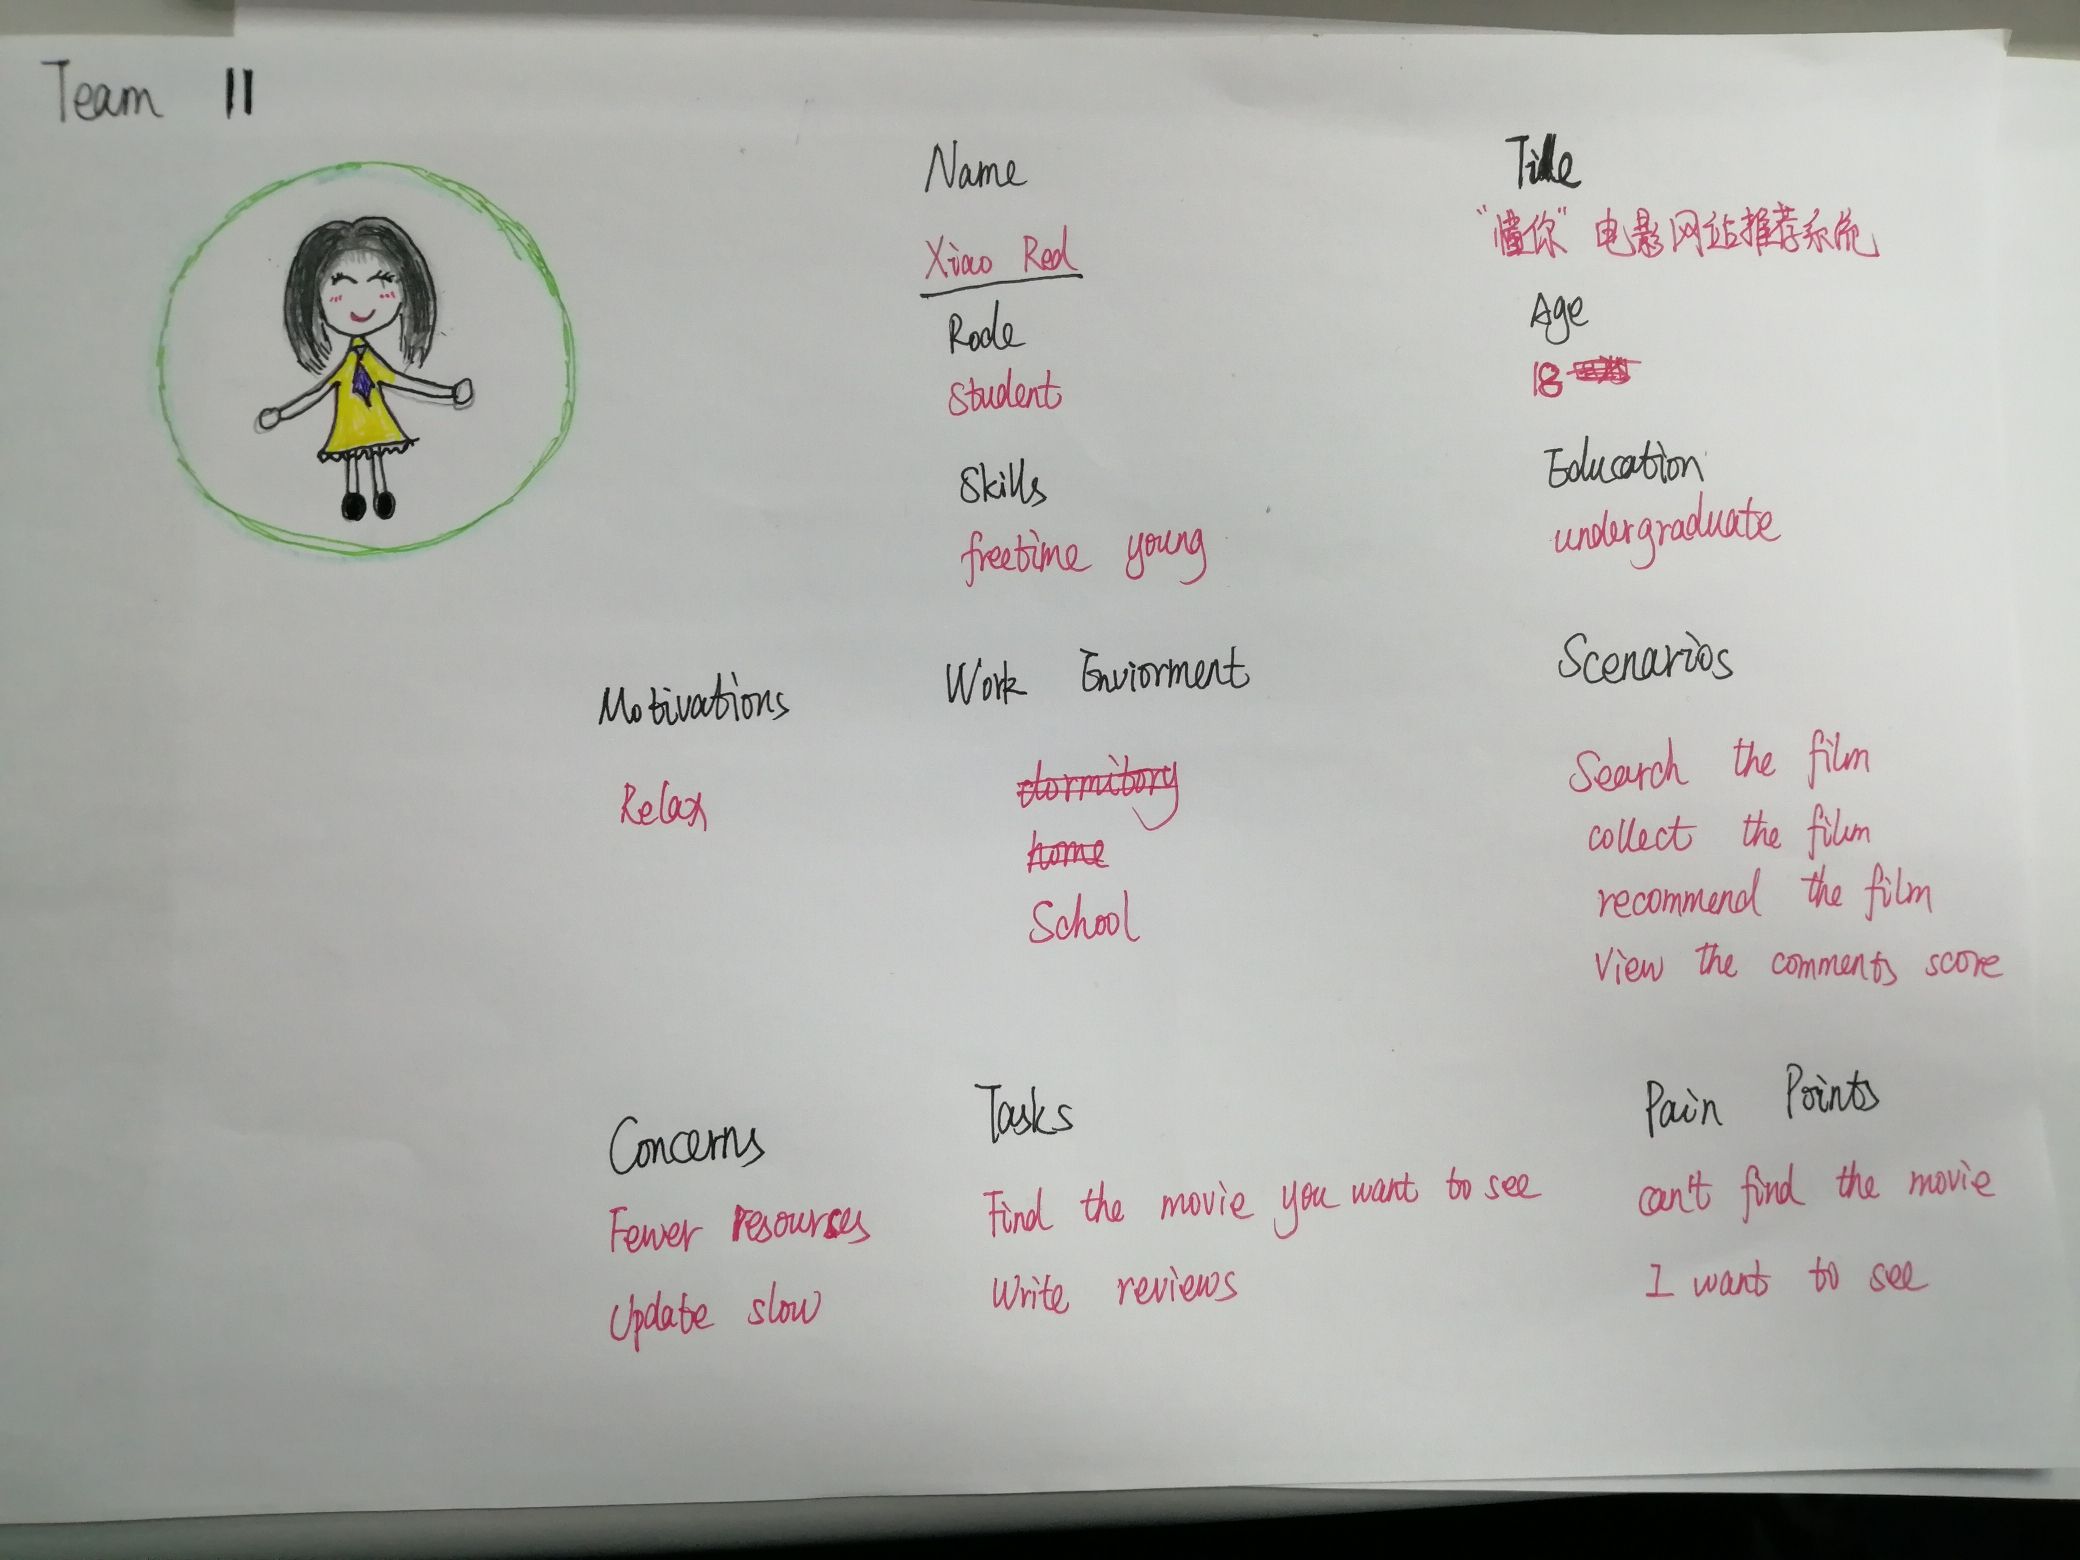 Team 11
Name
Xiao Red
Title
"懂你"电影网站推荐系统
Rode
Student
Age
18
Skills
freetime young
Education
undergraduate
Motivations
Relax
Work Enviorment
dormitory
home
School
Scenarios
Search the film
collect the film
recommend the film
View the comments score
Concerns
Fewer resourses
Update slow
Tasks
Find the movie you want to see
Write reviews
Pain Points
can't find the movie
I want to see